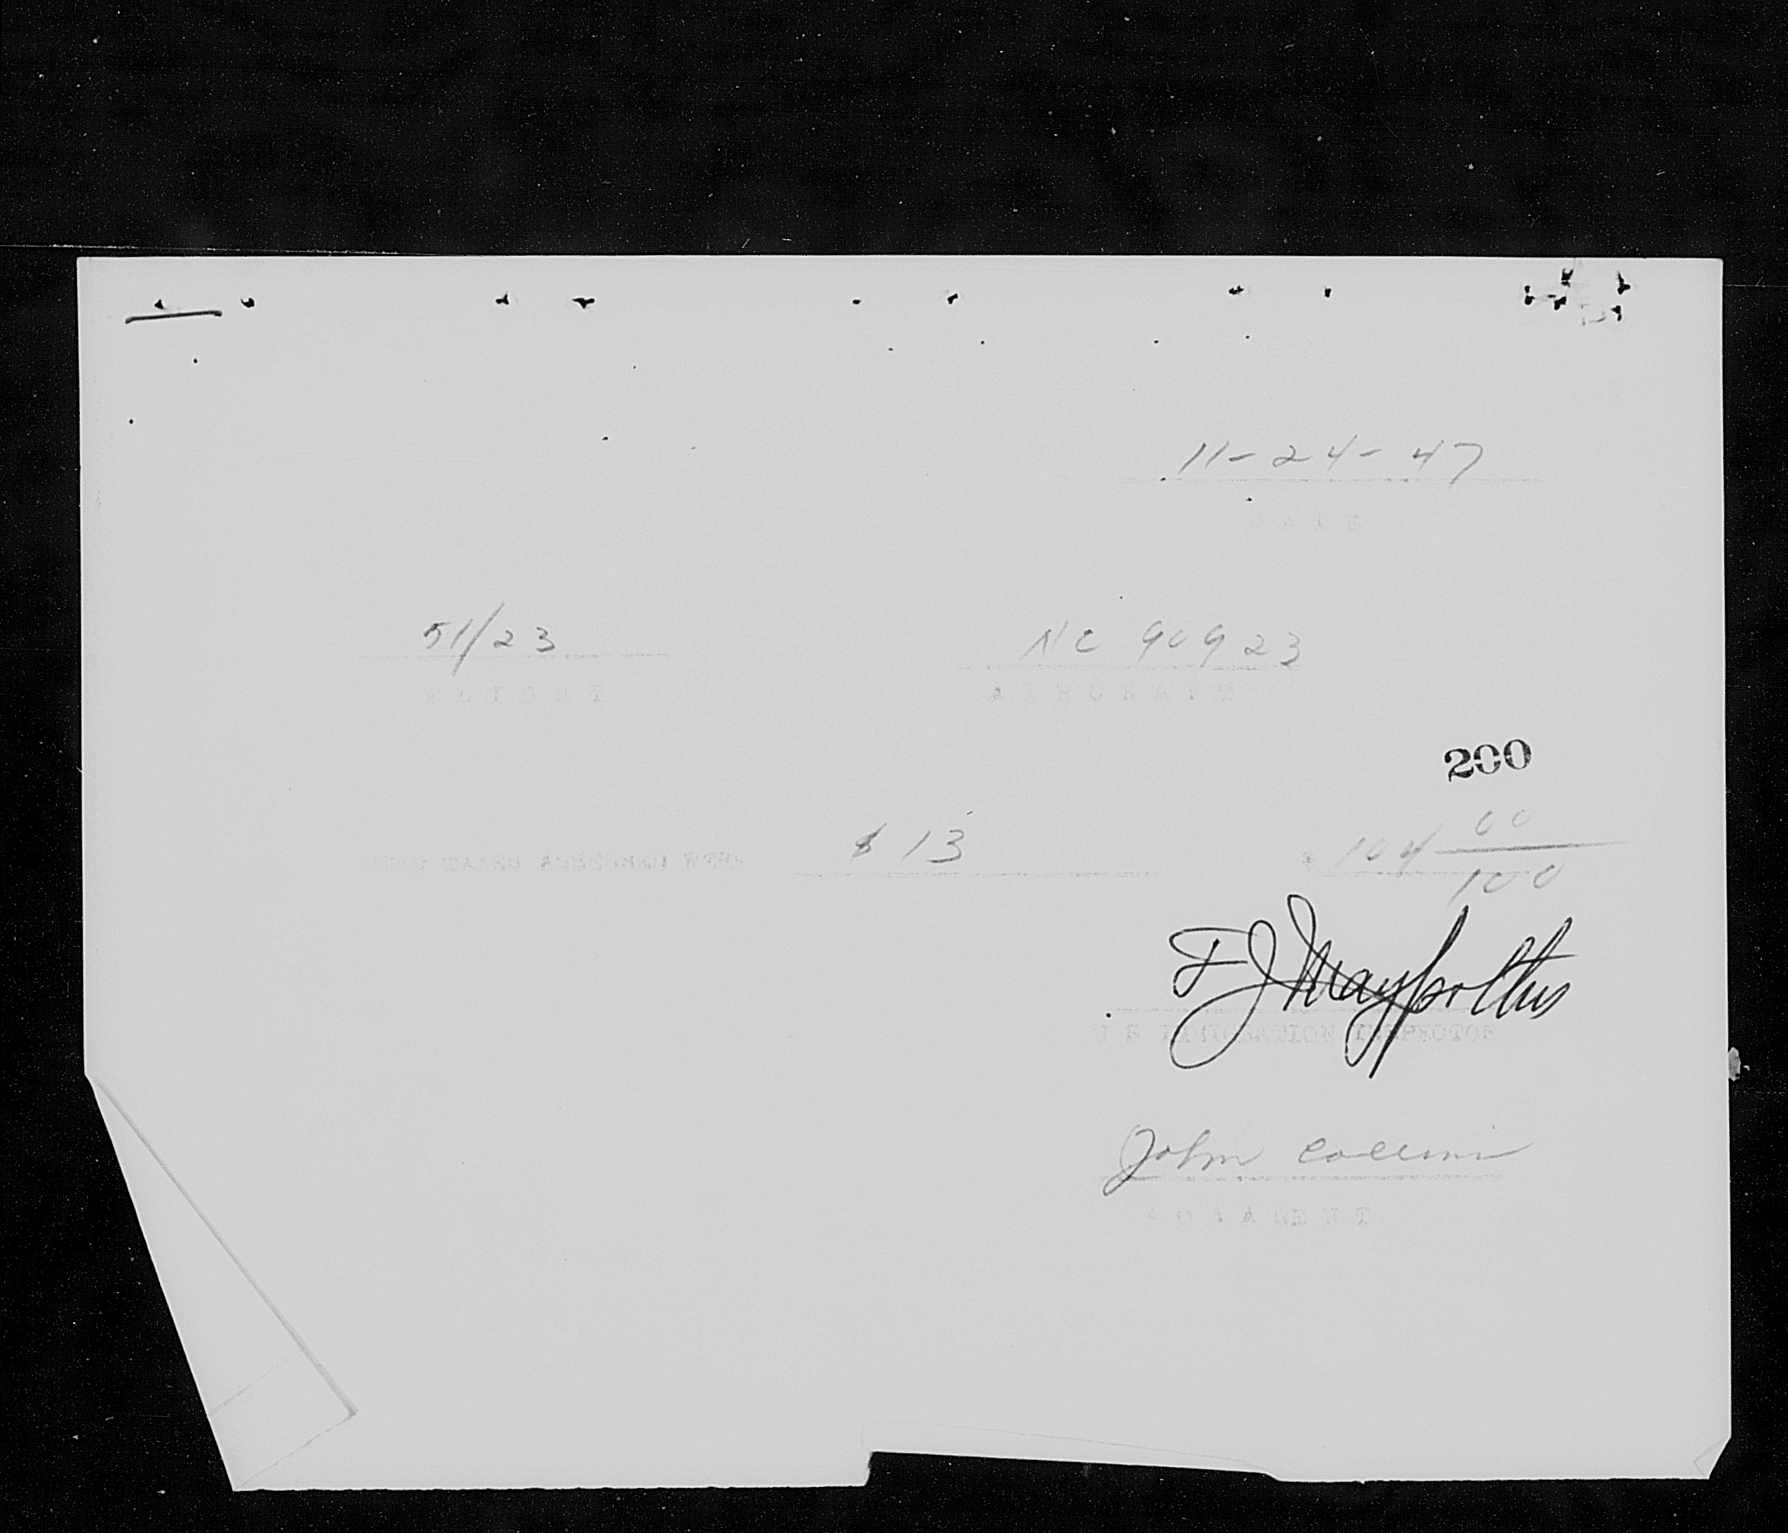 11-24-47
DATE
51/23 NC 90923
FLIGHT AIRCRAFT
200
HEAD TAXES ASSESSED WERE $ 13 $ 104 00/100
F J Maypolthus
U S IMMIGRATION INSPECTOR
John Collins
AGENT